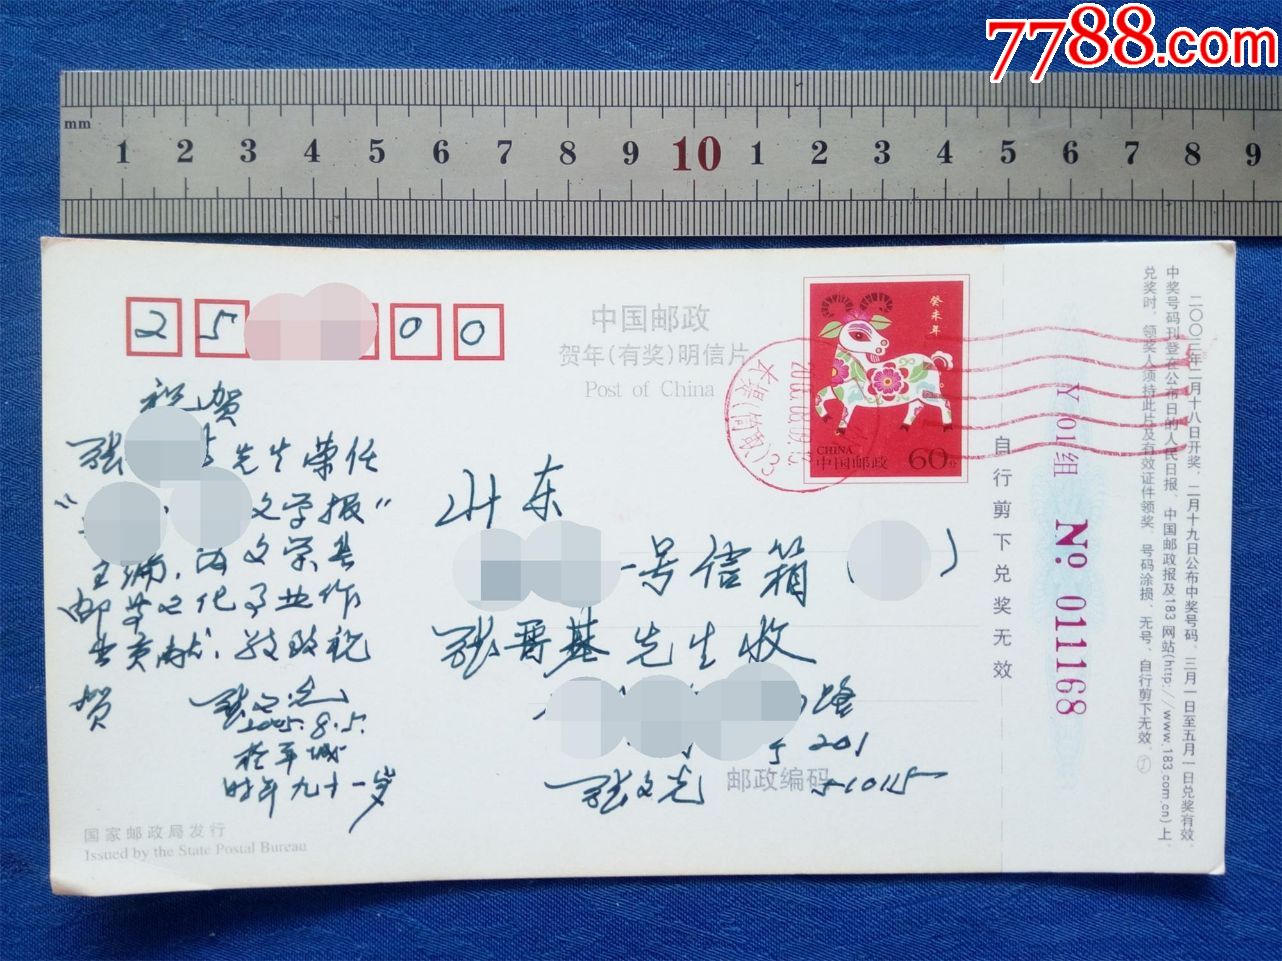 7788.com
mm 1 2 3 4 5 6 7 8 9 10 1 2 3 4 5 6 7 8 9
2 5 0 0
中国邮政
贺年(有奖)明信片
Post of China
癸未年
CHINA
中国邮政 60分
祝贺
张 先生荣任
" 文学报"
主编,为文学与
邮
文化事业作
出贡献,特致祝
贺
张文光
2005.8.5.
于羊城
时年九十一岁
山东
号信箱( )
张晋基先生收
路
号 201
张文光 邮政编码 510115
国家邮政局发行
Issued by the State Postal Bureau
自行剪下兑奖无效
Y 01组 No 011168
二〇〇三年二月十八日开奖,二月十九日公布中奖号码,三月一日至五月一日兑奖有效。
中奖号码刊登在公布日的人民日报、中国邮政报及183网站(http://www.183.com.cn)上,
兑奖时,领奖人须持此片及有效证件领奖,号码涂损、无号、自行剪下无效。